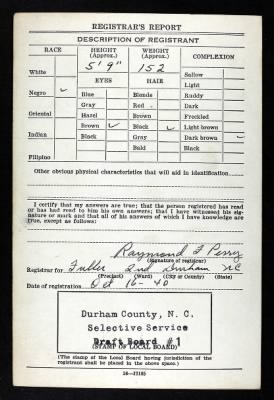 REGISTRAR'S REPORT
DESCRIPTION OF REGISTRANT
RACE HEIGHT (Approx.) WEIGHT (Approx.) COMPLEXION
5' 9" 152
White Sallow
EYES HAIR Light
Negro ✓ Blue Blonde Ruddy
Gray Red Dark
Oriental Hazel Brown Freckled
Brown ✓ Black ✓ Light brown
Indian Black Gray Dark brown ✓
Bald Black
Filipino
Other obvious physical characteristics that will aid in identification
I certify that my answers are true; that the person registered has read
or has had read to him his own answers; that I have witnessed his sig-
nature or mark and that all of his answers of which I have knowledge are
true, except as follows:
Raymond L Perry
(Signature of registrar)
Registrar for Fuller 2nd Durham N C
(Precinct) (Ward) (City or County) (State)
Date of registration Oct 16-40
Durham County, N. C.
Selective Service
Draft Board #1
(STAMP OF LOCAL BOARD)
(The stamp of the Local Board having jurisdiction of the
registrant shall be placed in the above space.)
16—17105